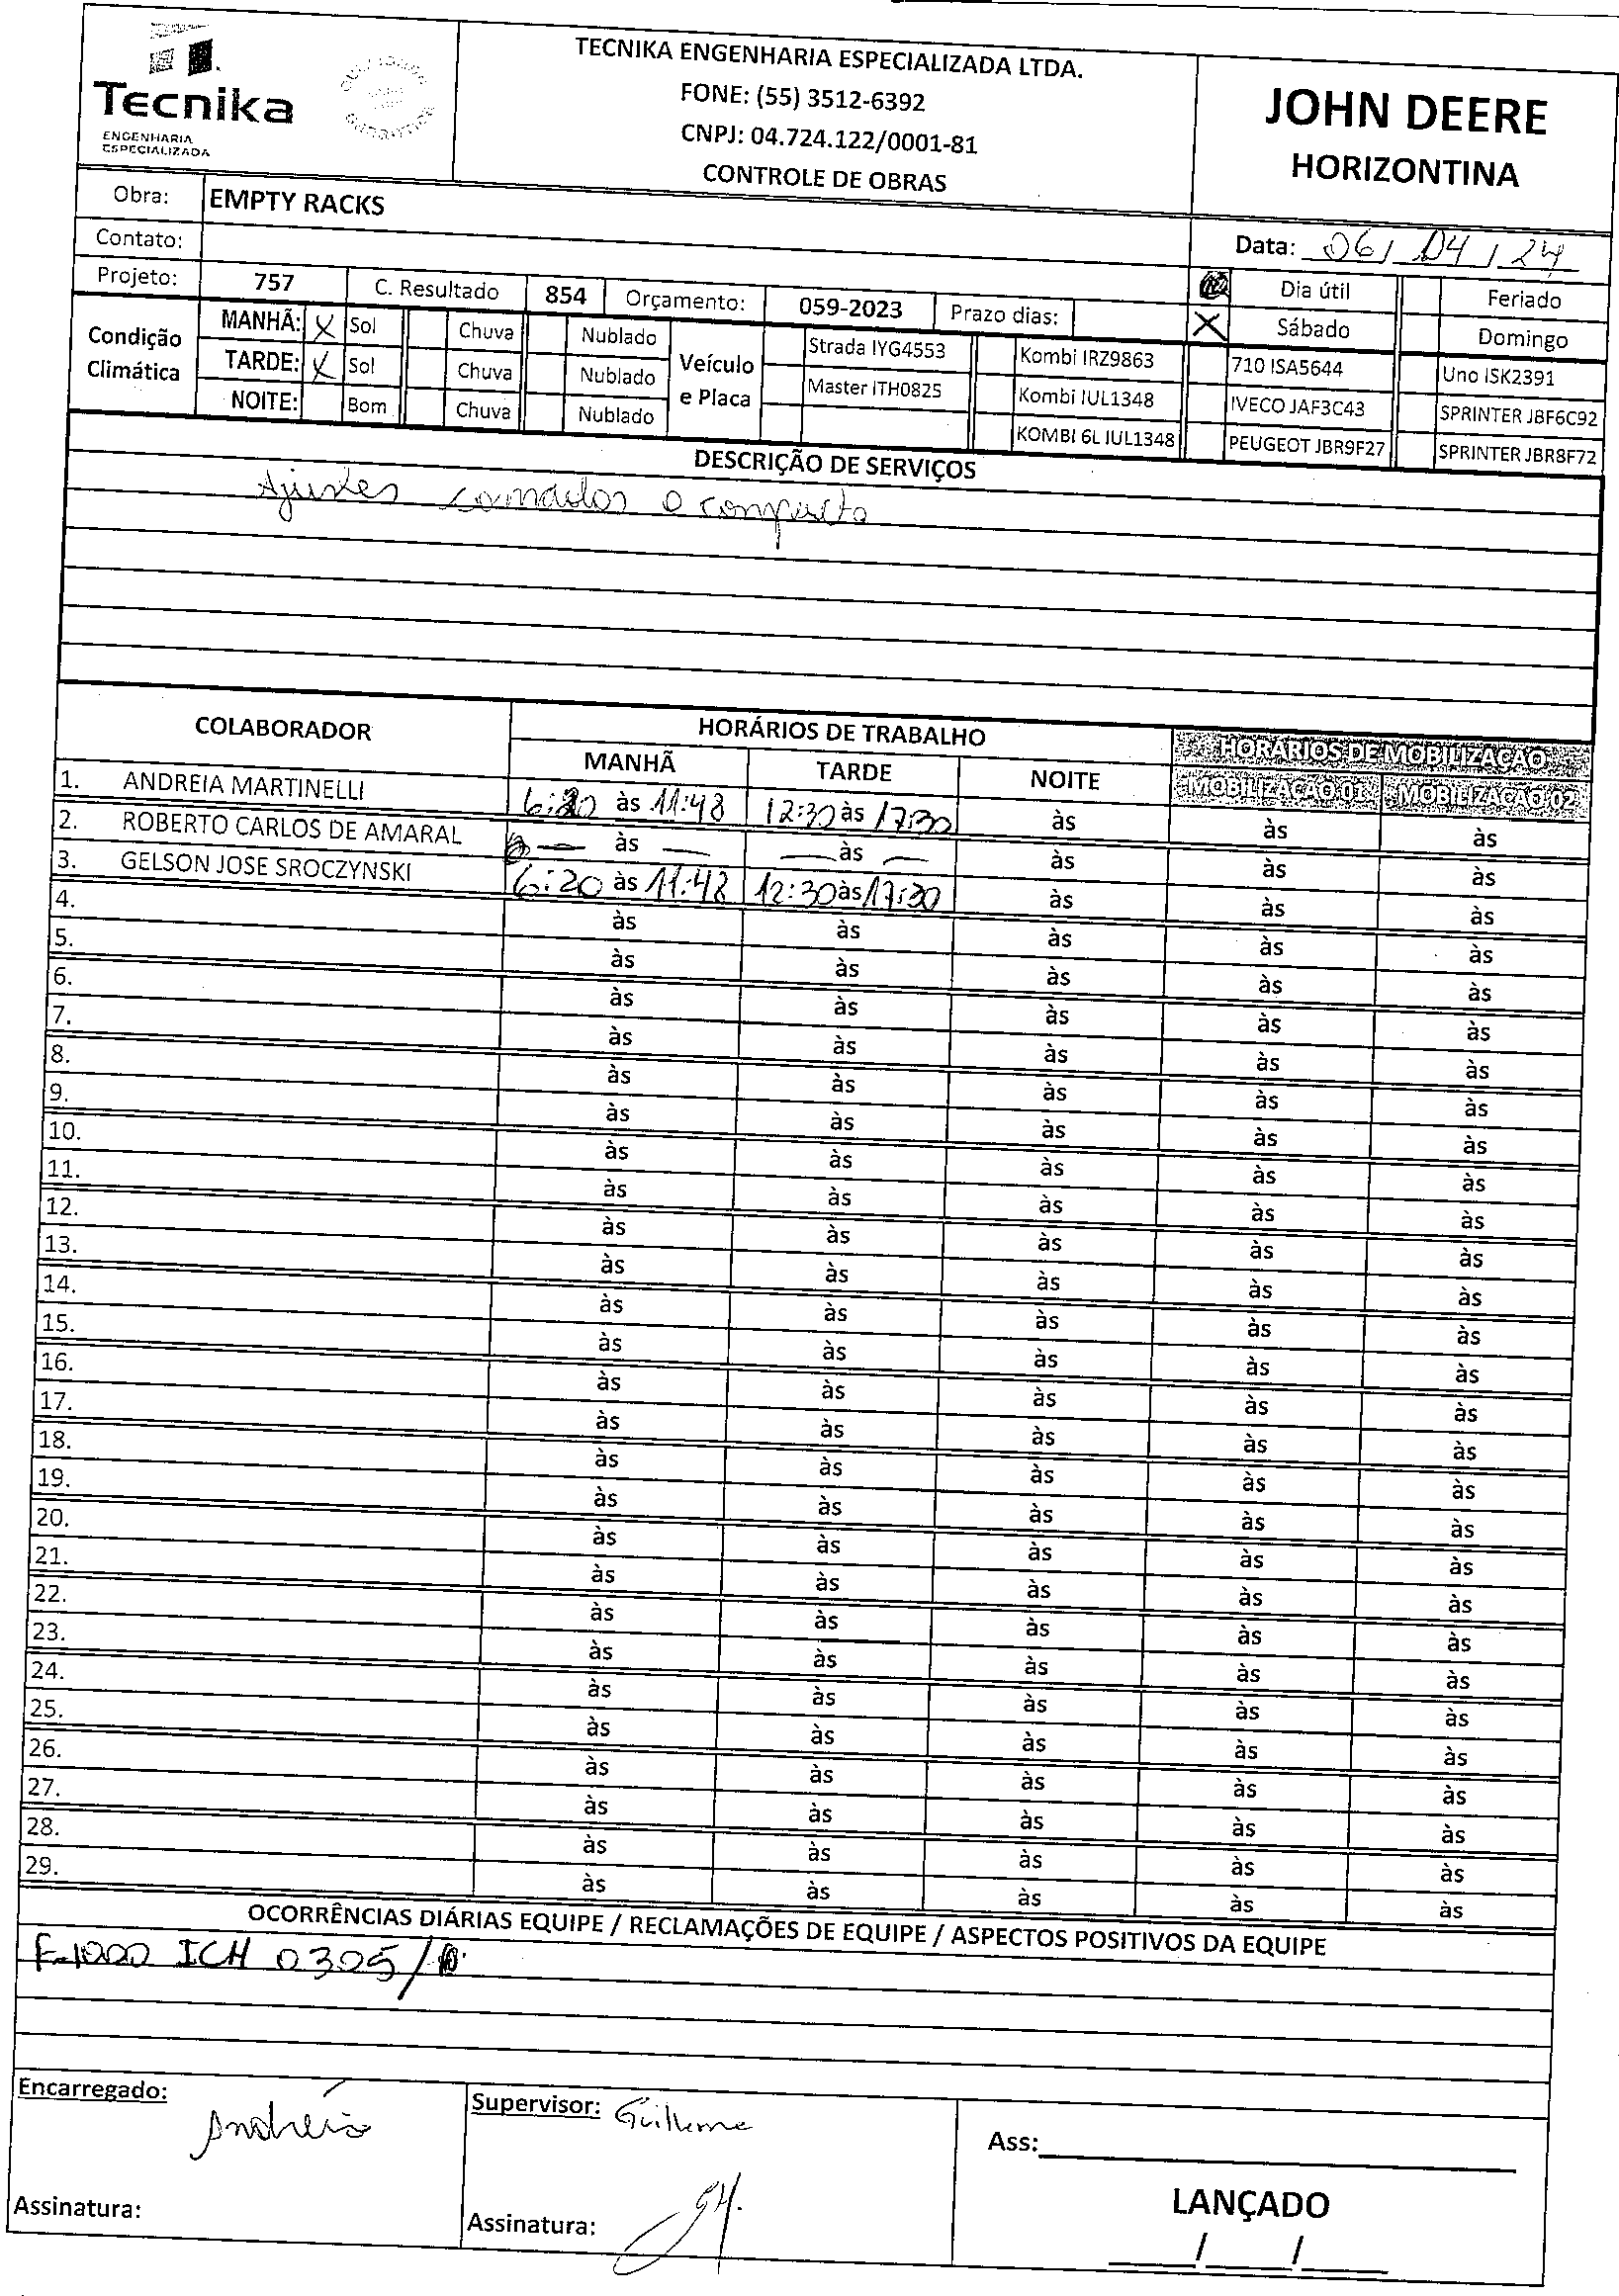 Tecnika
ENGENHARIA
ESPECIALIZADA
TECNIKA ENGENHARIA ESPECIALIZADA LTDA.
FONE: (55) 3512-6392
CNPJ: 04.724.122/0001-81
CONTROLE DE OBRAS
JOHN DEERE
HORIZONTINA
Obra: EMPTY RACKS
Contato:
Data: 06/04/24
Projeto: 757 C. Resultado 854 Orçamento: 059-2023 Prazo dias:
Dia útil Feriado
X Sábado Domingo
Condição Climática
MANHÃ: X Sol Chuva Nublado
TARDE: X Sol Chuva Nublado
NOITE: Bom Chuva Nublado
Veículo e Placa
Strada IYG4553 Kombi IRZ9863 710 ISA5644 Uno ISK2391
Master ITH0825 Kombi IUL1348 IVECO JAF3C43 SPRINTER JBF6C92
KOMBI 6L IUL1348 PEUGEOT JBR9F27 SPRINTER JBR8F72
DESCRIÇÃO DE SERVIÇOS
Ajustes
COLABORADOR HORÁRIOS DE TRABALHO HORÁRIOS DE MOBILIZAÇÃO
MANHÃ TARDE NOITE MOBILIZAÇÃO 01 MOBILIZAÇÃO 02
1. ANDREIA MARTINELLI 6:20 às 11:48 12:30 às 17:30 às às às
2. ROBERTO CARLOS DE AMARAL — às — — às — às às às
3. GELSON JOSE SROCZYNSKI 6:20 às 11:48 12:30 às 17:30 às às às
4. às às às às às
5. às às às às às
6. às às às às às
7. às às às às às
8. às às às às às
9. às às às às às
10. às às às às às
11. às às às às às
12. às às às às às
13. às às às às às
14. às às às às às
15. às às às às às
16. às às às às às
17. às às às às às
18. às às às às às
19. às às às às às
20. às às às às às
21. às às às às às
22. às às às às às
23. às às às às às
24. às às às às às
25. às às às às às
26. às às às às às
27. às às às às às
28. às às às às às
29. às às às às às
OCORRÊNCIAS DIÁRIAS EQUIPE / RECLAMAÇÕES DE EQUIPE / ASPECTOS POSITIVOS DA EQUIPE
F-1000 ICH 0305/
Encarregado: Andréia
Supervisor: Guilherme
Ass:
LANÇADO
Assinatura:
Assinatura: GH.
/ /